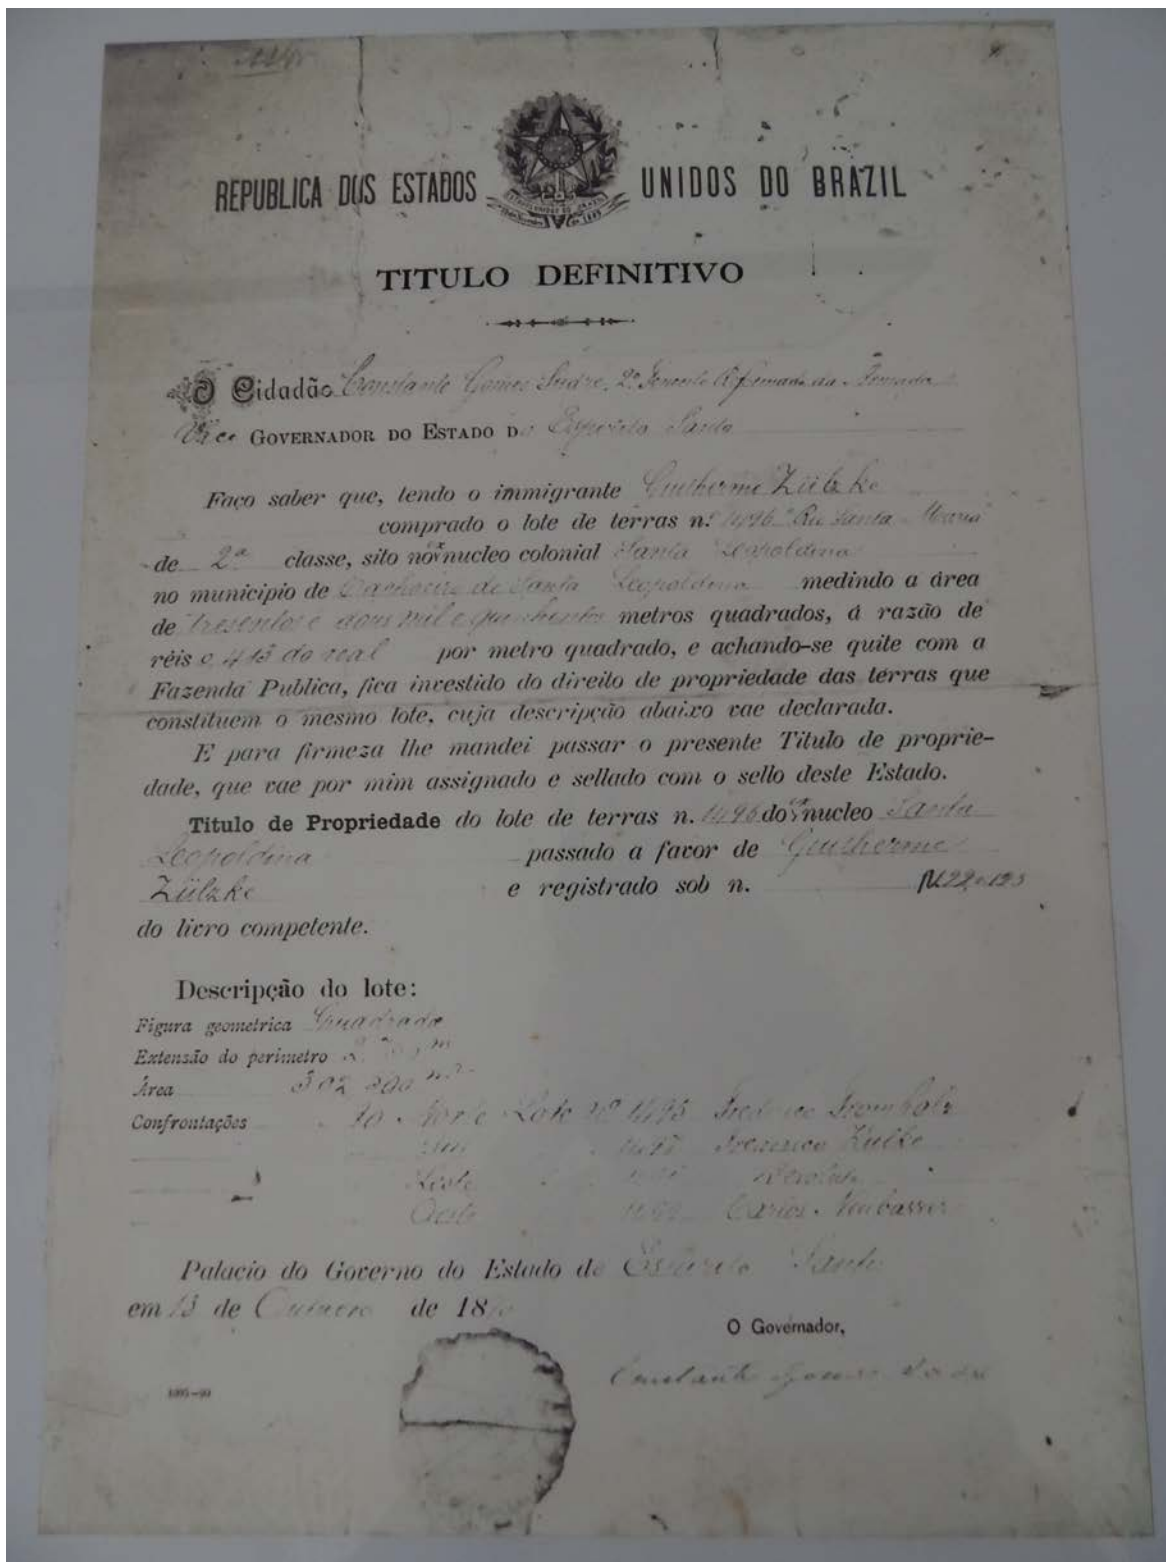 REPUBLICA DOS ESTADOS UNIDOS DO BRAZIL
TITULO DEFINITIVO
O Cidadão Constante Gomes Sudré, 2º Tenente Reformado da Armada
Vice GOVERNADOR DO ESTADO do Espirito Santo
Faço saber que, tendo o immigrante Guilherme Zülzke
comprado o lote de terras n. 1496 Rio Santa Maria
de 2ª classe, sito no ex nucleo colonial Santa Leopoldina
no municipio de Cachoeiro de Santa Leopoldina medindo a área
de Tresentos e dous mil e quinhentos metros quadrados, á razão de
réis do real por metro quadrado, e achando-se quite com a
Fazenda Publica, fica investido do direito de propriedade das terras que
constituem o mesmo lote, cuja descripção abaixo vae declarada.
E para firmeza lhe mandei passar o presente Titulo de proprie-
dade, que vae por mim assignado e sellado com o sello deste Estado.
Titulo de Propriedade do lote de terras n. 1496 do ex nucleo Santa
Leopoldina passado a favor de Guilherme
Zülzke e registrado sob n.
do livro competente.
Descripção do lote:
Figura geometrica Quadrado
Extensão do perimetro
Área m²
Confrontações Ao Norte Lote nº 1495 Frederico
Sul 1497 Frederico Zülke
Leste
Oeste Carlos
Palacio do Governo do Estado do Espirito Santo
em 13 de Outubro de 18
O Governador,
Constante Gomes Sudré